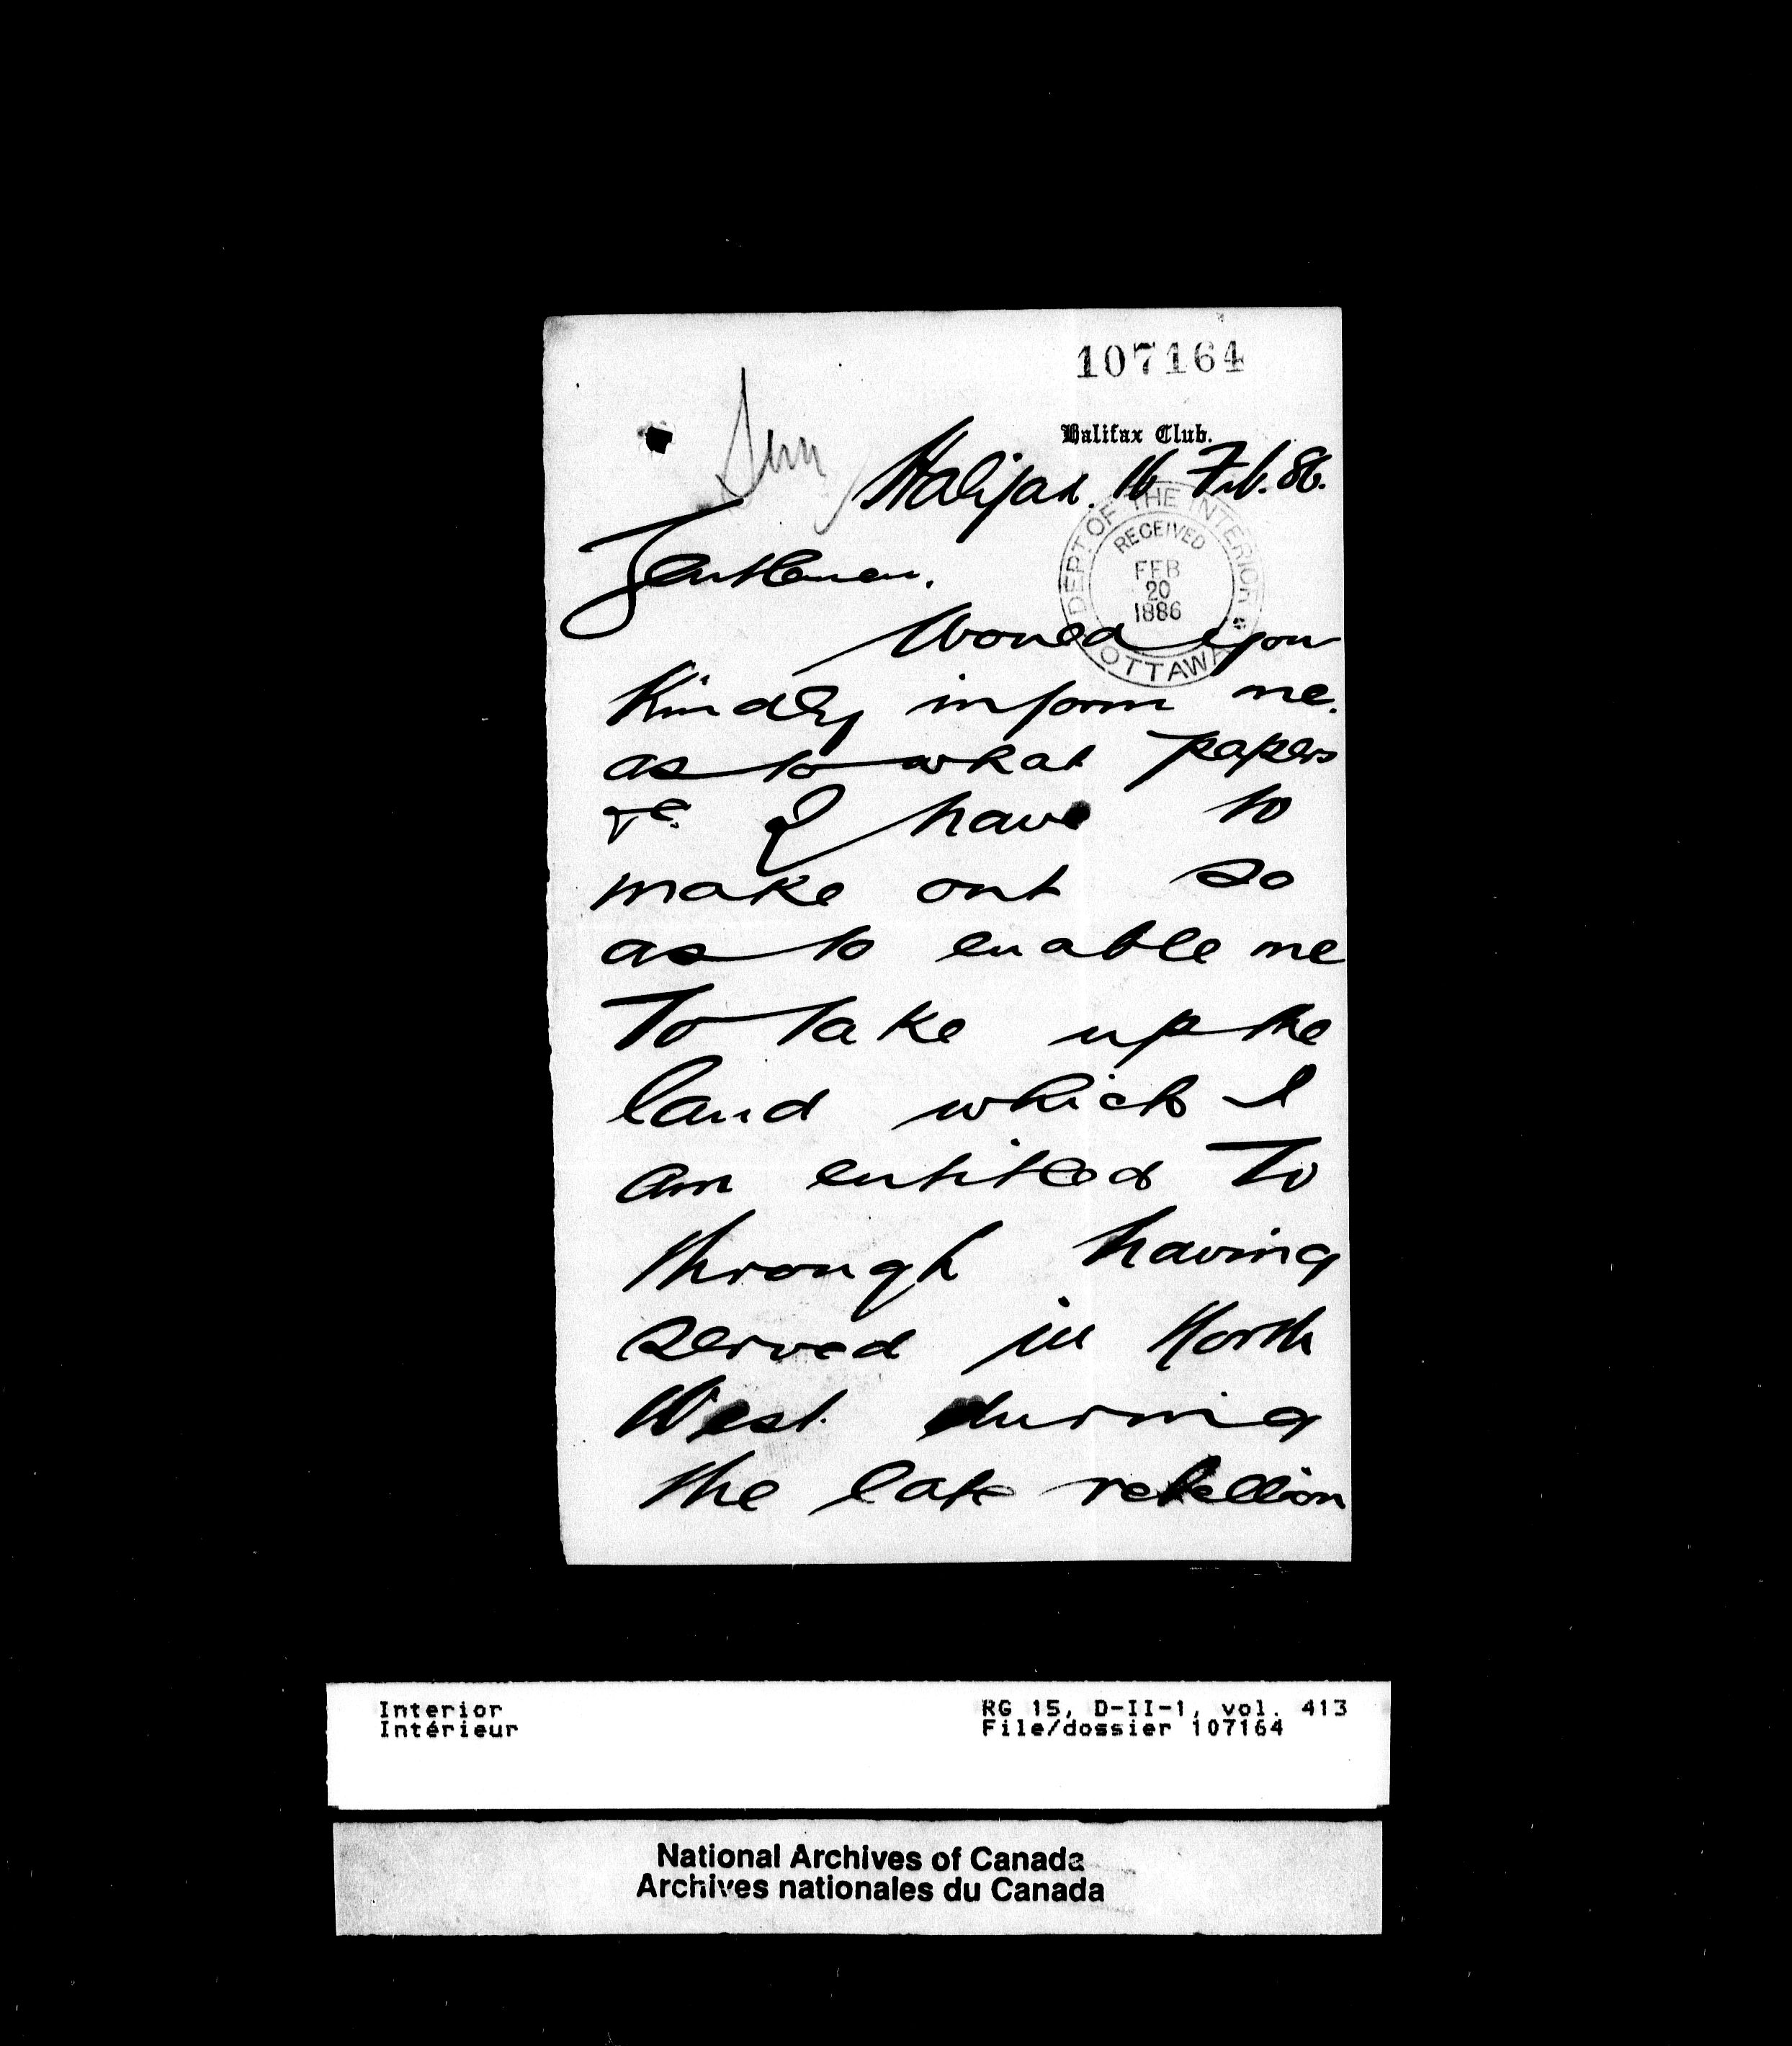 107164
Halifax Club.
Halifax. 16 Feb. 86.
DEPT OF THE INTERIOR
RECEIVED
FEB
20
1886
OTTAWA
Gentlemen.
Would you
Kindly inform me.
as to what papers
&c. I have to
make out so
as to enable me
To take up the
land which I
am entitled To
through having
served in North
West. during
the late rebellion
Interior
Intérieur
RG 15, D-II-1, vol. 413
File/dossier 107164
National Archives of Canada
Archives nationales du Canada